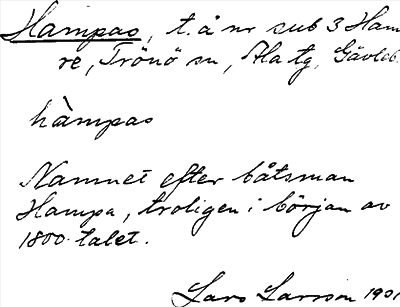 Hampas, t. å nr sub 3 Ham
re, Trönö sn, Ala tg, Gävleb.
hàmpas
Namnet efter båtsman
Hampa, troligen i början av
1800-talet.
Lars Larsson 1901